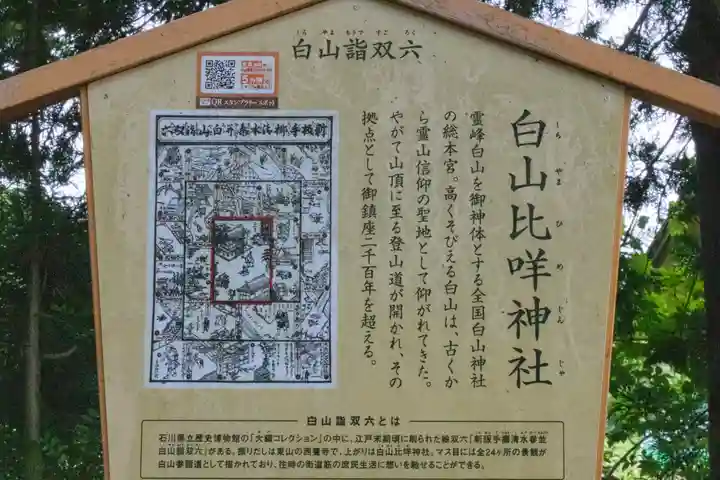 白山詣双六
しら やま もうで すご ろく
QRスタンプラリースポット
白山比咩神社
しら やま ひ め じん じゃ
霊峰白山を御神体とする全国白山神社
の総本宮。高くそびえる白山は、古くか
ら霊山信仰の聖地として仰がれてきた。
やがて山頂に至る登山道が開かれ、その
拠点として御鎮座二千百年を超える。
白山詣双六とは
石川県立歴史博物館の「大鋸コレクション」の中に、江戸末期頃に刷られた絵双六「新版手摺清水参並
白山詣双六」がある。振りだしは東山の西養寺で、上がりは白山比咩神社。マス目には全24ヶ所の景観が
白山参詣道として描かれており、往時の街道筋の庶民生活に想いを馳せることができる。